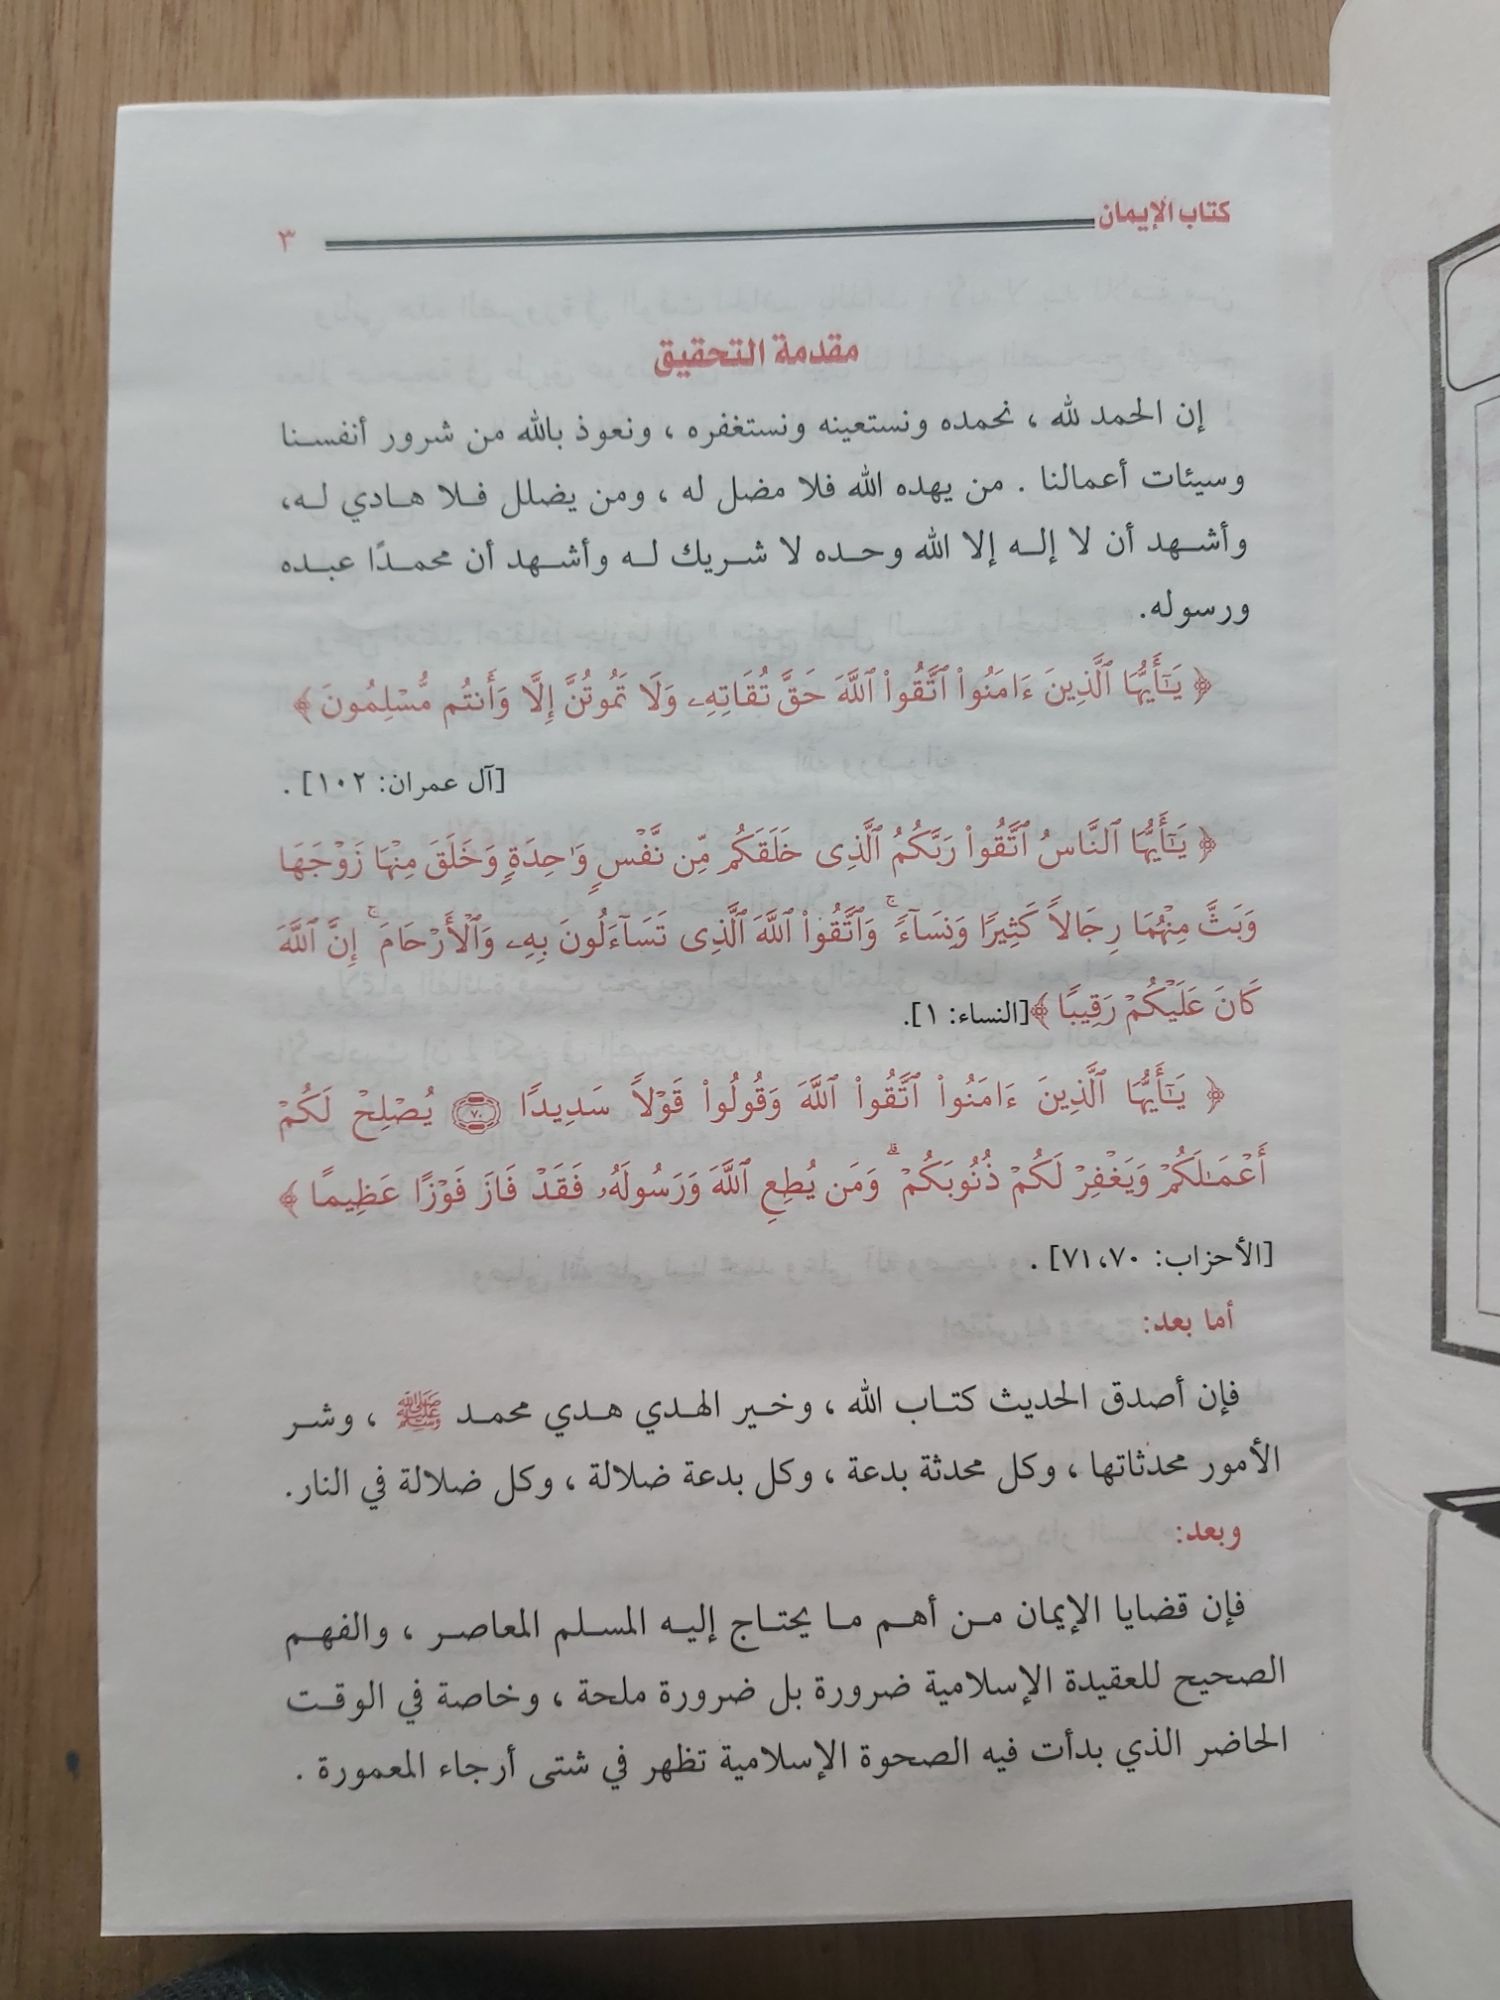 كتاب الإيمان ٣
مقدمة التحقيق
إن الحمد لله ، نحمده ونستعينه ونستغفره ، ونعوذ بالله من شرور أنفسنا
وسيئات أعمالنا . من يهده الله فلا مضل له ، ومن يضلل فلا هادي له،
وأشهد أن لا إله إلا الله وحده لا شريك له وأشهد أن محمدًا عبده
ورسوله.
﴿ يَـٰٓأَيُّهَا ٱلَّذِينَ ءَامَنُوا۟ ٱتَّقُوا۟ ٱللَّهَ حَقَّ تُقَاتِهِۦ وَلَا تَمُوتُنَّ إِلَّا وَأَنتُم مُّسْلِمُونَ ﴾
[آل عمران: ١٠٢] .
﴿ يَـٰٓأَيُّهَا ٱلنَّاسُ ٱتَّقُوا۟ رَبَّكُمُ ٱلَّذِى خَلَقَكُم مِّن نَّفْسٍ وَٰحِدَةٍ وَخَلَقَ مِنْهَا زَوْجَهَا
وَبَثَّ مِنْهُمَا رِجَالاً كَثِيرًا وَنِسَآءً ۚ وَٱتَّقُوا۟ ٱللَّهَ ٱلَّذِى تَسَآءَلُونَ بِهِۦ وَٱلْأَرْحَامَ ۚ إِنَّ ٱللَّهَ
كَانَ عَلَيْكُمْ رَقِيبًا ﴾[النساء: ١].
﴿ يَـٰٓأَيُّهَا ٱلَّذِينَ ءَامَنُوا۟ ٱتَّقُوا۟ ٱللَّهَ وَقُولُوا۟ قَوْلاً سَدِيدًا ٧٠ يُصْلِحْ لَكُمْ
أَعْمَـٰلَكُمْ وَيَغْفِرْ لَكُمْ ذُنُوبَكُمْ ۗ وَمَن يُطِعِ ٱللَّهَ وَرَسُولَهُۥ فَقَدْ فَازَ فَوْزًا عَظِيمًا ﴾
[الأحزاب: ٧١،٧٠] .
أما بعد:
فإن أصدق الحديث كتاب الله ، وخير الهدي هدي محمد ﷺ ، وشر
الأمور محدثاتها ، وكل محدثة بدعة ، وكل بدعة ضلالة ، وكل ضلالة في النار.
وبعد:
فإن قضايا الإيمان من أهم ما يحتاج إليه المسلم المعاصر ، والفهم
الصحيح للعقيدة الإسلامية ضرورة بل ضرورة ملحة ، وخاصة في الوقت
الحاضر الذي بدأت فيه الصحوة الإسلامية تظهر في شتى أرجاء المعمورة .